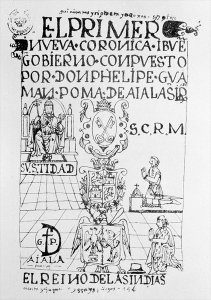 EL PRIMER
NVEVA CORONICA I BVE
GOBIERNO CONPVESTO
POR DON PHELIPE GVA
MAN POMA DE AIALA SIR
S.C.R.M.
SV STIDAD
G P
AIALA
EL REINO DE LAS INDIAS